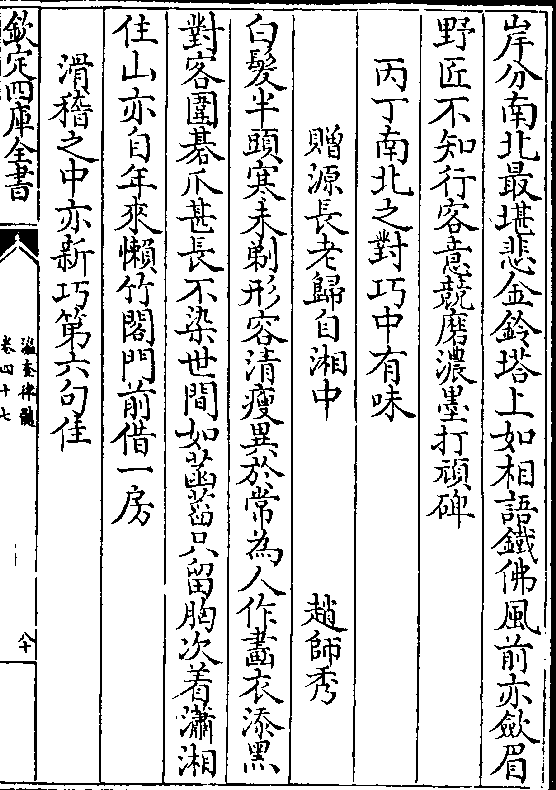 岸分南北最堪悲金鈴塔上如相語鐵佛風前亦斂眉
野匠不知行客意競磨濃墨打頑碑
丙丁南北之對巧中有味
贈源長老歸自湘中　趙師秀
白髮半頭寒未剃形容清瘦異於常為人作畫衣添黑
對客圍碁爪甚長不染世間如菡萏只留胸次着瀟湘
住山亦自年來懶竹閣門前借一房
滑稽之中亦新巧第六句佳
欽定四庫全書
瀛奎律髓
卷四十七
八十